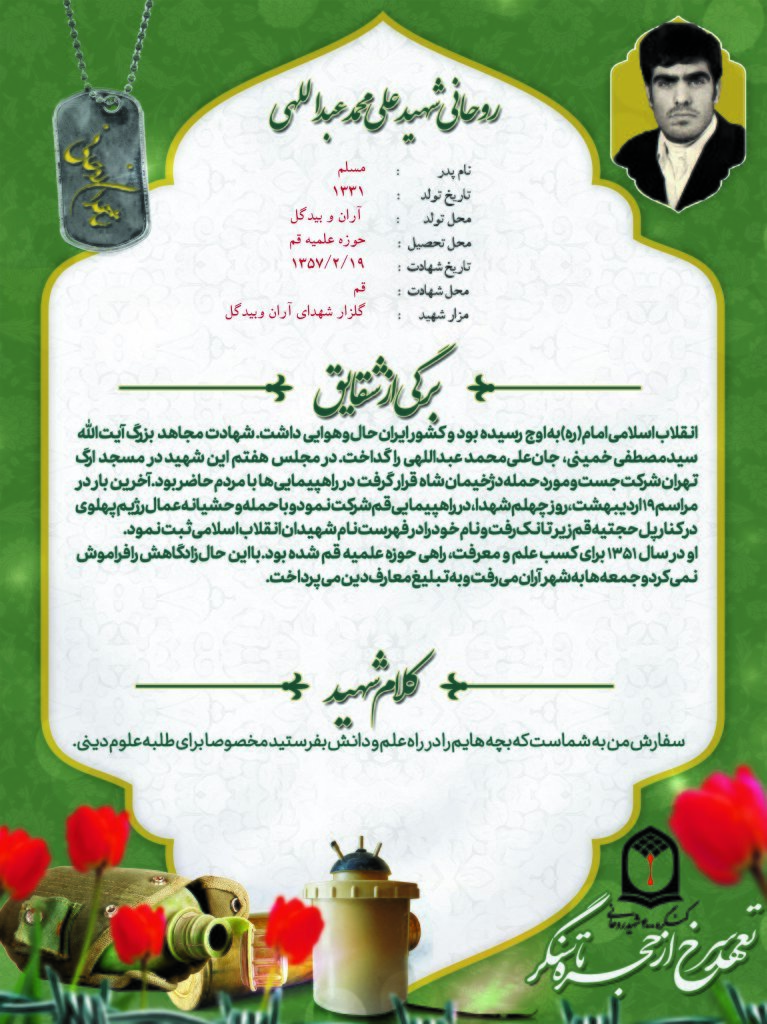 روحانی شهید علی محمد عبداللهی
نام پدر : مسلم
تاریخ تولد : ۱۳۳۱
محل تولد : آران و بیدگل
محل تحصیل : حوزه علمیه قم
تاریخ شهادت : ۱۳۵۷/۲/۱۹
محل شهادت : قم
مزار شهید : گلزار شهدای آران وبیدگل
برگی از شقایق
انقلاب اسلامی امام(ره) به اوج رسیده بود و کشور ایران حال و هوایی داشت. شهادت مجاهد بزرگ آیت الله
سید مصطفی خمینی، جان علی محمد عبداللهی را گداخت. در مجلس هفتم این شهید در مسجد ارگ
تهران شرکت جست و مورد حمله دژخیمان شاه قرار گرفت در راهپیمایی ها با مردم حاضر بود. آخرین بار در
مراسم ۱۹ اردیبهشت، روز چهلم شهدا، در راهپیمایی قم شرکت نمود و با حمله وحشیانه عمال رژیم پهلوی
در کنار پل حجتیه قم زیر تانک رفت و نام خود را در فهرست نام شهیدان انقلاب اسلامی ثبت نمود.
او در سال ۱۳۵۱ برای کسب علم و معرفت، راهی حوزه علمیه قم شده بود. با این حال زادگاهش را فراموش
نمی کرد و جمعه ها به شهر آران می رفت و به تبلیغ معارف دین می پرداخت.
کلام شهید
سفارش من به شما است که بچه هایم را در راه علم و دانش بفرستید مخصوصا برای طلبه علوم دینی.
کنگره ۴۰۰۰ شهید روحانی
تعهد سرخ از حجره تا سنگر